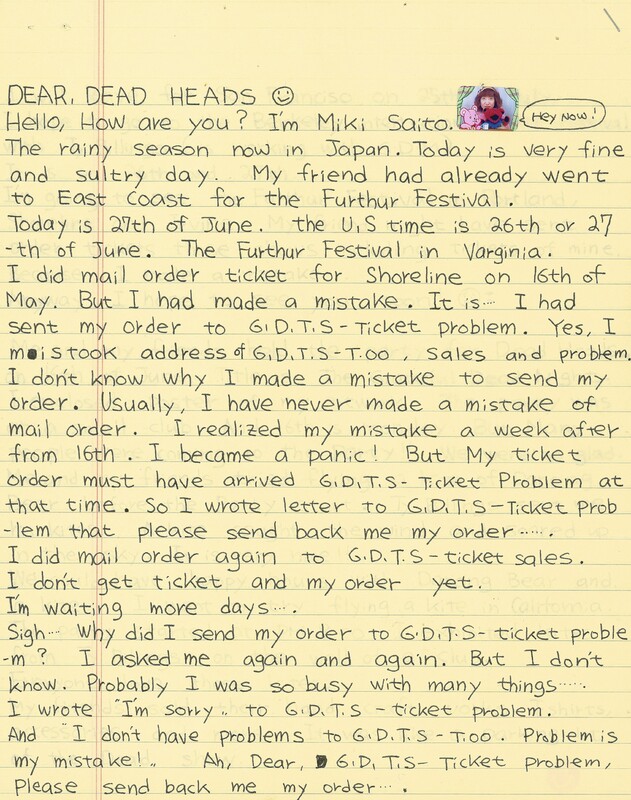 DEAR, DEAD HEADS ☺
Hello, How are you? I'm Miki Saito. Hey Now!
The rainy season now in Japan. Today is very fine
and sultry day. My friend had already went
to East Coast for the Furthur Festival.
Today is 27th of June. the U,S time is 26th or 27
-th of June. The Furthur Festival in Varginia.
I did mail order ticket for Shoreline on 16th of
May. But I had made a mistake. It is… I had
sent my order to G.D.T.S-Ticket problem. Yes, I
mistook address of G.D.T.S-T.OO, Sales and problem.
I don't know why I made a mistake to send my
order. Usually, I have never made a mistake of
mail order. I realized my mistake a week after
from 16th. I became a panic! But My ticket
order must have arrived G.D.T.S-Ticket Problem at
that time. So I wrote letter to G.D.T.S-Ticket Prob
-lem that please send back me my order…..
I did mail order again to G.D.T.S-ticket sales.
I don't get ticket and my order yet.
I'm waiting more days….
Sigh… Why did I send my order to G.D.T.S-ticket proble
-m? I asked me again and again. But I don't
know. Probably I was so busy with many things…..
I wrote "I'm sorry.. to G.D.T.S-ticket problem.
And "I don't have problems to G.D.T.S-T.OO. Problem is
my mistake!.. Ah, Dear, G.D.T.S-Ticket Problem,
Please send back me my order….